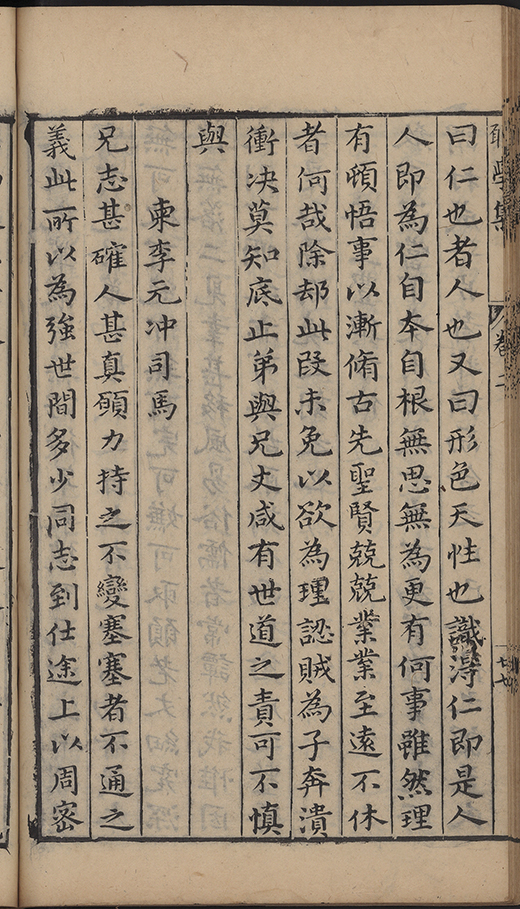 學集 卷二
曰仁也者人也又曰形色天性也識得仁即是人
人即為仁自本自根無思無為更有何事雖然理
有頓悟事以漸脩古先聖賢兢兢業業至遠不休
者何哉除却此段未免以欲為理認賊為子奔潰
衝决莫知底止弟與兄丈咸有世道之責可不慎
與
柬李元冲司馬
兄志甚確人甚真願力持之不變塞塞者不通之
義此所以為強世間多少同志到仕途上以周密